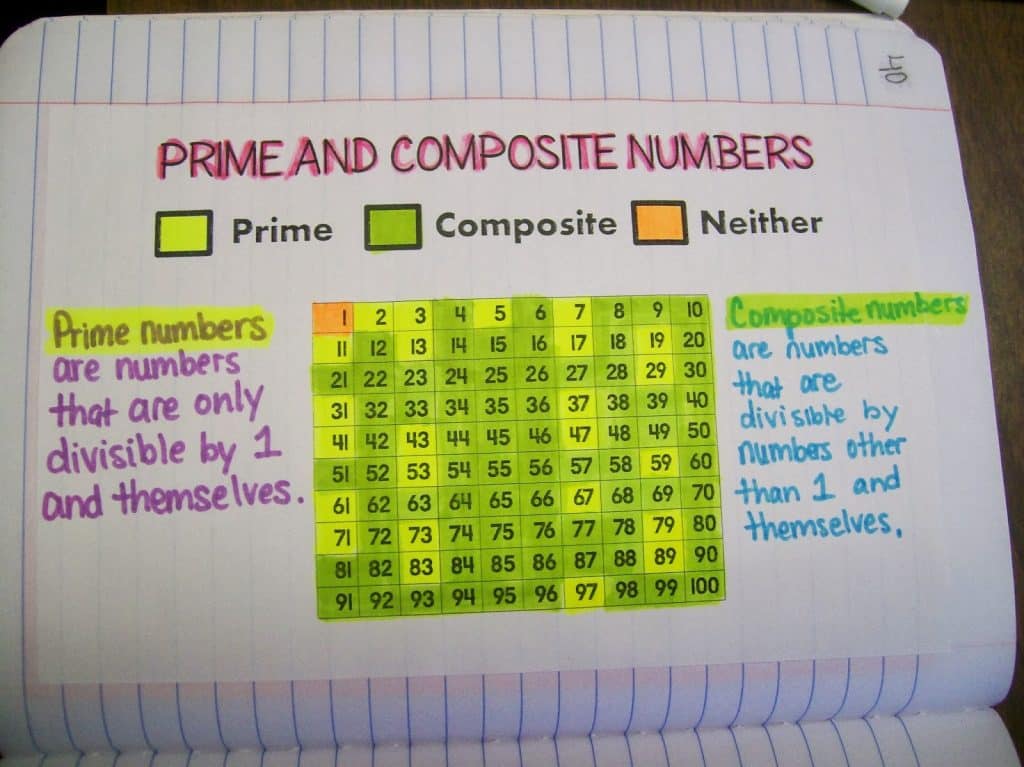 40
PRIME AND COMPOSITE NUMBERS
Prime Composite Neither
Prime numbers
are numbers
that are only
divisible by 1
and themselves.
1 2 3 4 5 6 7 8 9 10
11 12 13 14 15 16 17 18 19 20
21 22 23 24 25 26 27 28 29 30
31 32 33 34 35 36 37 38 39 40
41 42 43 44 45 46 47 48 49 50
51 52 53 54 55 56 57 58 59 60
61 62 63 64 65 66 67 68 69 70
71 72 73 74 75 76 77 78 79 80
81 82 83 84 85 86 87 88 89 90
91 92 93 94 95 96 97 98 99 100
Composite numbers
are numbers
that are
divisible by
numbers other
than 1 and
themselves.